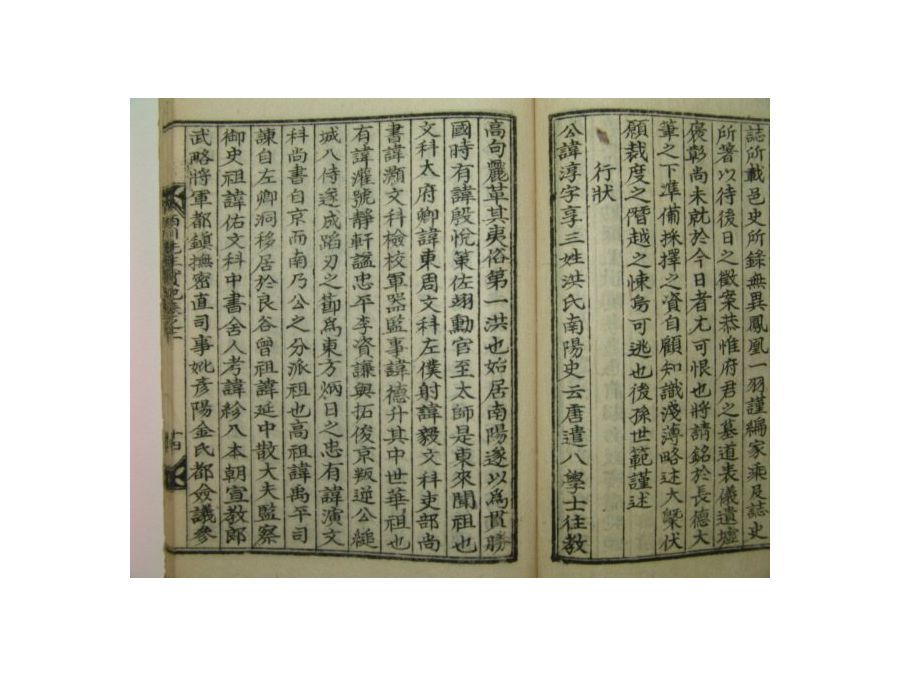 誌所載邑史所錄無異鳳凰一羽謹編家乘及誌史
所畧以待後日之徵案恭惟府君之墓道表儀遺墟
褒彰尚未就於今日者尤可恨也將請銘於長德大
筆之下準備採擇之資自顧知識淺薄略述大槩伏
願裁度之僭越之悚烏可逃也後孫世範謹述
行狀
公諱淳字享三姓洪氏南陽史云唐遣八學士往教
高句麗革其夷俗第一洪也始居南陽遂以爲貫勝
國時有諱殷悅策佐翊勳官至太師是東來聞祖也
文科太府卿諱東周文科左僕射諱毅文科吏部尚
書諱灝文科檢校軍器監事諱德升其中世華祖也
有諱灌號靜軒諡忠平李資謙與拓俊京叛逆公縋
城入侍遂成蹈刃之節爲東方炳日之忠有諱演文
科尚書自京而南乃公之分派祖也高祖諱禹平司
諫自左卿洞移居於良谷曾祖諱延中散大夫監察
御史祖諱佑文科中書舍人考諱紾入本朝宣教郞
武略將軍都鎭撫密直司事妣彦陽金氏都僉議參